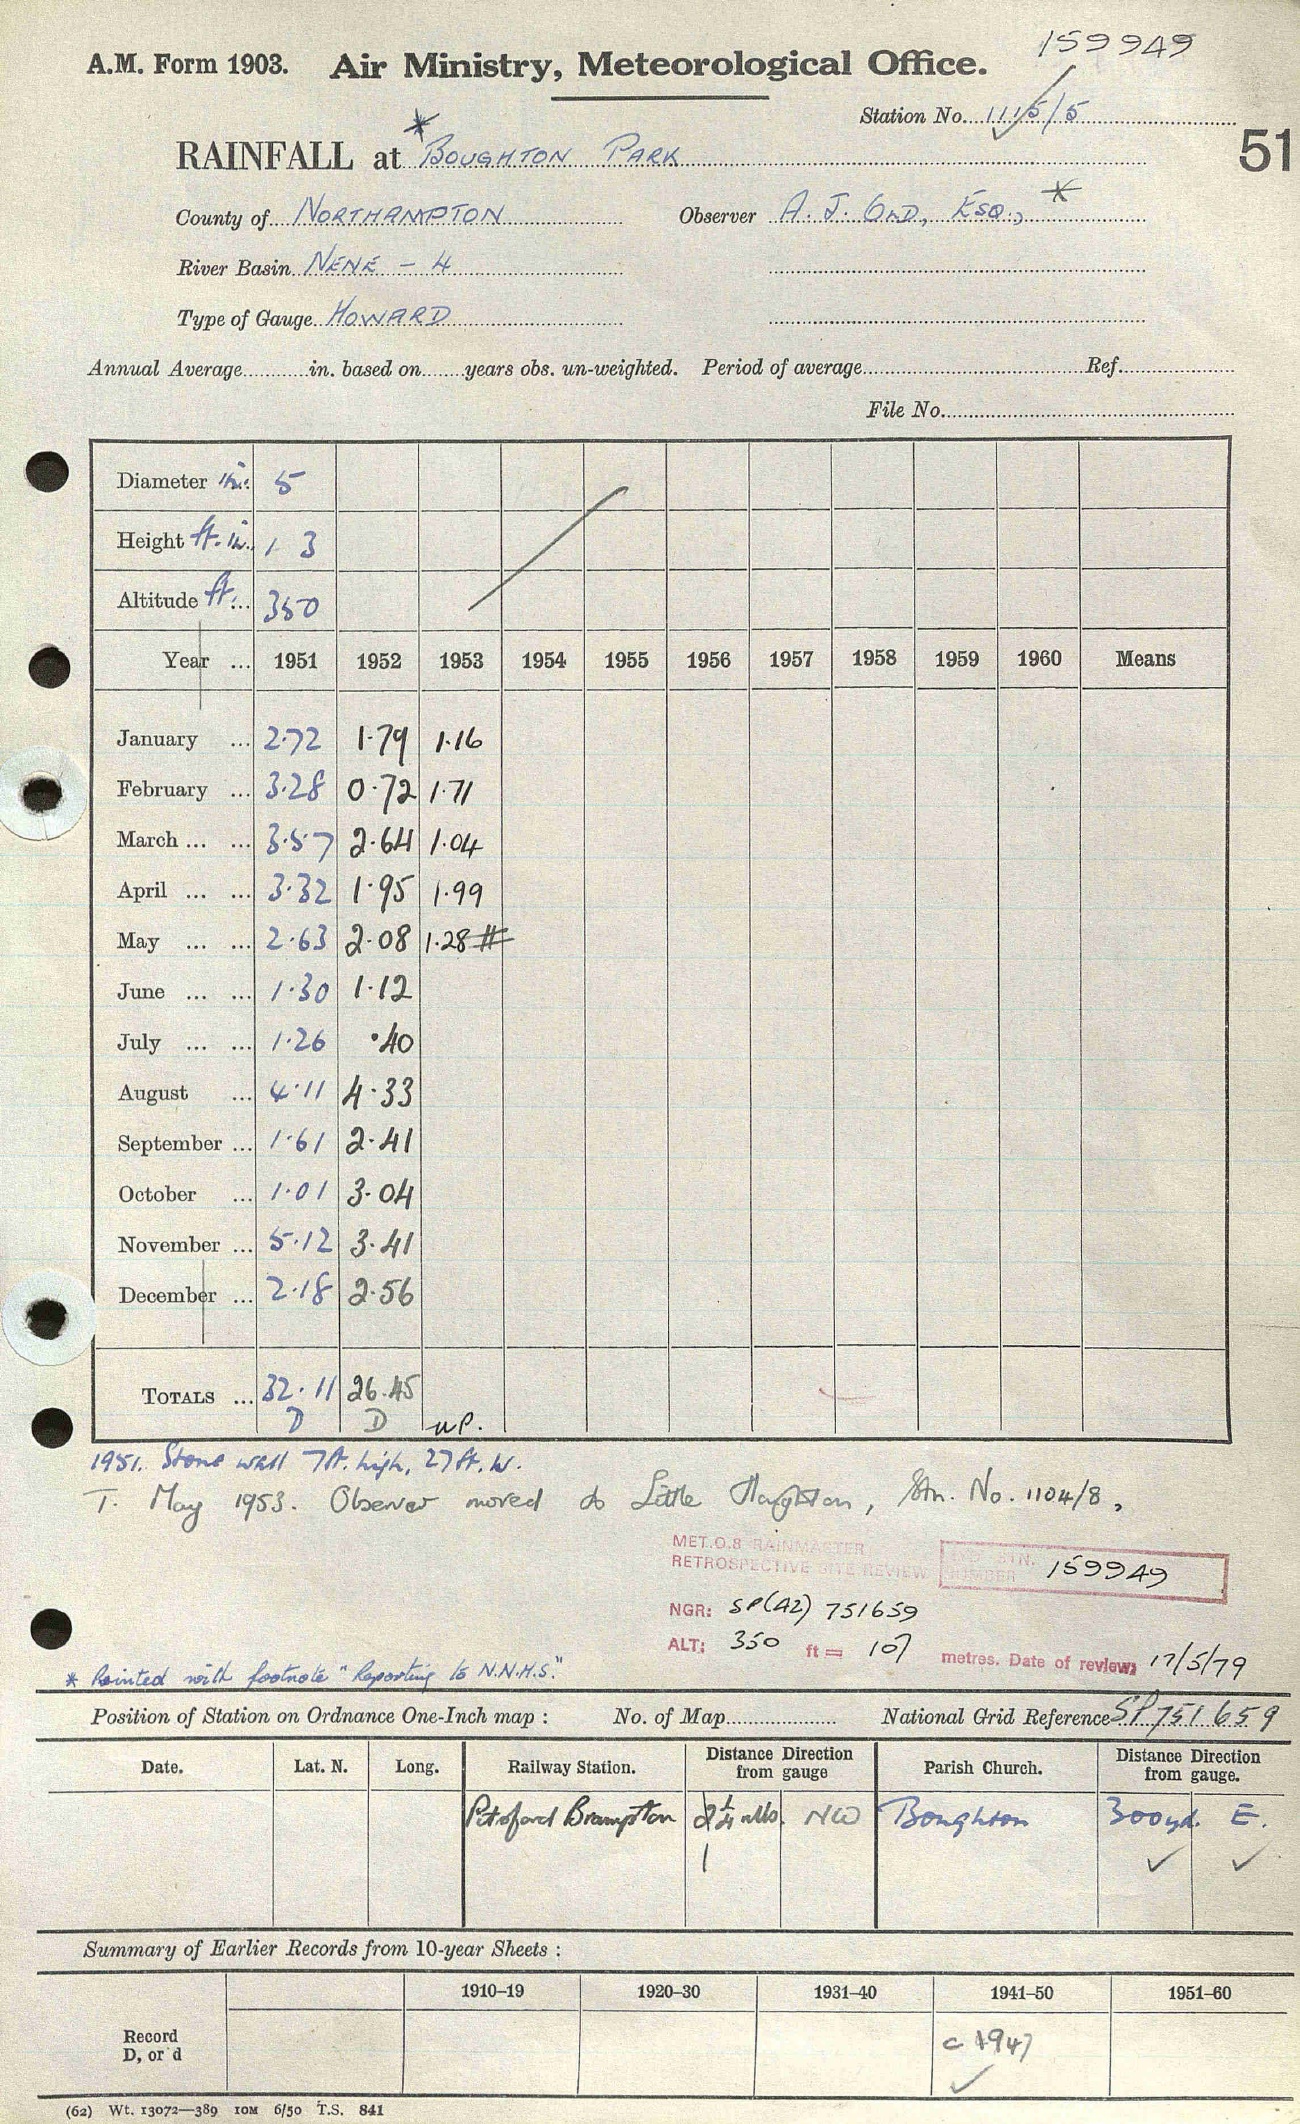 159949
A.M. Form 1903. Air Ministry, Meteorological Office.
Station No. 1115/5
51
RAINFALL at * BOUGHTON PARK
County of NORTHAMPTON Observer A. J. ORD, ESQ., *
River Basin NENE - 4
Type of Gauge HOWARD
Annual Average in. based on years obs. un-weighted. Period of average Ref.
File No.
Diameter in. 5
Height ft. in. 1 3
Altitude ft. 350
Year ... 1951 1952 1953 1954 1955 1956 1957 1958 1959 1960 Means
January ... 2.72 1.79 1.16
February ... 3.28 0.72 1.71
March ... ... 3.57 2.64 1.04
April ... ... 3.32 1.95 1.99
May ... ... 2.63 2.08 1.28 #
June ... ... 1.30 1.12
July ... ... 1.26 .40
August ... 4.11 4.33
September ... 1.61 2.41
October ... 1.01 3.04
November ... 5.12 3.41
December ... 2.18 2.56
TOTALS ... 32.11 26.45
D D np.
1951. Stone wall 7ft. high, 27ft. W.
T. May 1953. Observer moved to Little Houghton, Stn. No. 1104/8,
MET.O.8 RAINMASTER
RETROSPECTIVE SITE REVIEW STN. NUMBER 159949
NGR: SP(42) 751659
ALT: 350 ft = 107 metres. Date of review: 17/5/79
* Printed with footnote "Reporting to N.N.H.S."
Position of Station on Ordnance One-Inch map : No. of Map National Grid Reference SP 751659
Date. Lat. N. Long. Railway Station. Distance Direction from gauge Parish Church. Distance Direction from gauge.
Pitsford Brampton 2¼ mls. NW Boughton 300yd. E.
Summary of Earlier Records from 10-year Sheets :
1910–19 1920–30 1931–40 1941–50 1951–60
Record
D, or d c 1947
(62) Wt. 13072—389 10M 6/50 T.S. 841